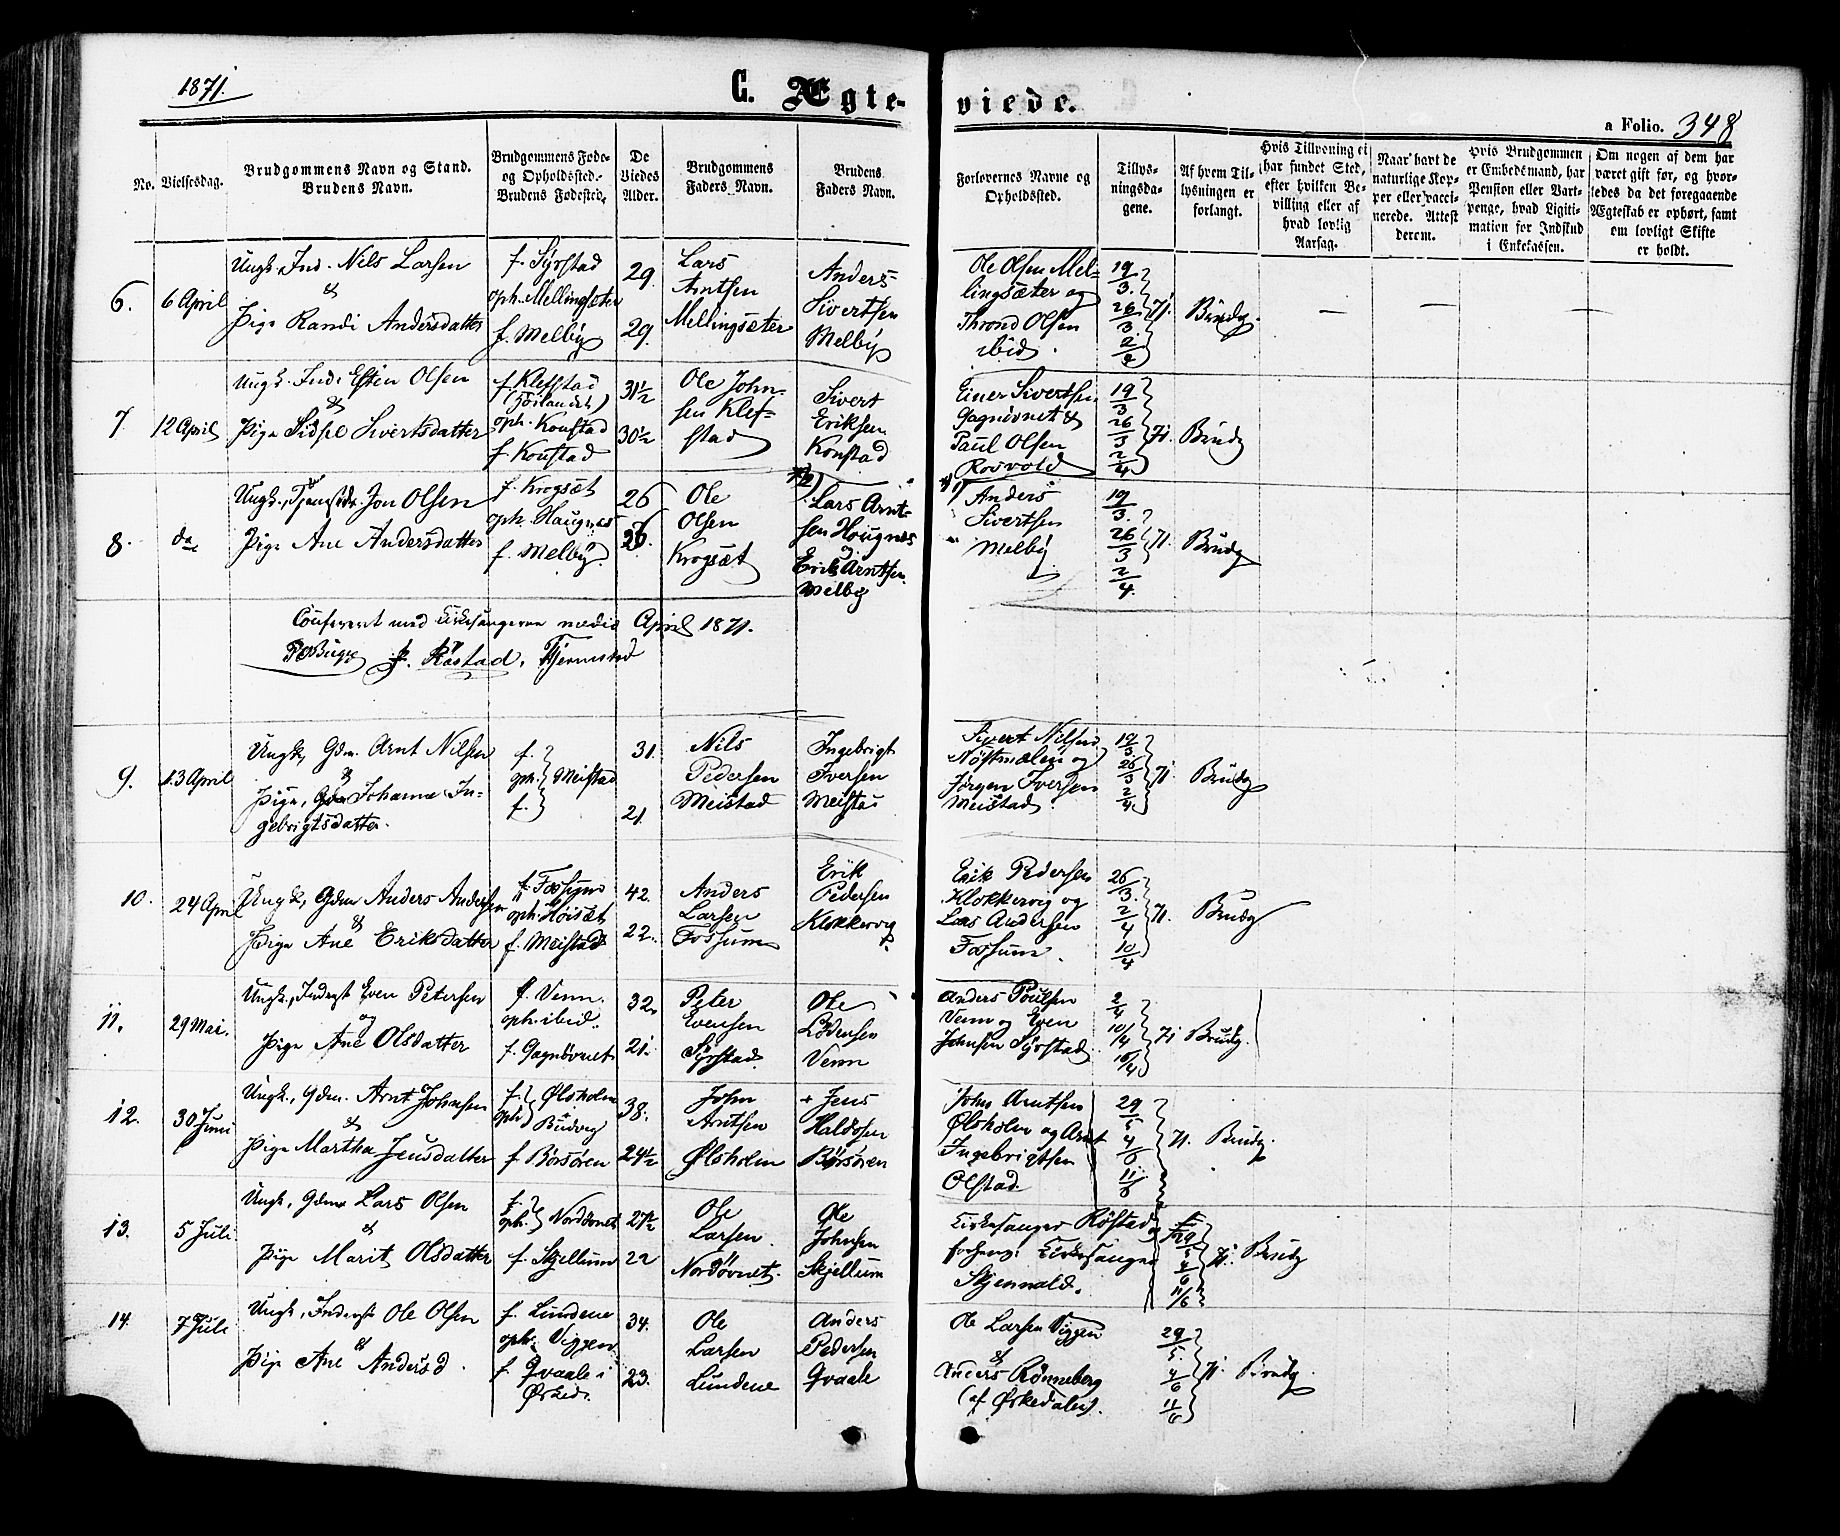 1871.
C. Ægte-
viede.
a Folio. 348
No.
Vielsesdag.
Brudgommens Navn og Stand.
Brudens Navn.
Brudgommens Føde-
og Opholdsted.
Brudens Fødested.
De
Viedes
Alder.
Brudgommens
Faders Navn.
Brudens
Faders Navn.
Forlovernes Navne og
Opholdssted.
Tillys-
ningsda-
gene.
Af hvem Til-
lysningen er
forlangt.
Hvis Tillysning ei
har fundet Sted,
efter hvilken Be-
villing eller af
hvad lovlig
Aarsag.
Naar havt de
naturlige Kop-
per eller vacci-
nerede. Attest
derom.
Hvis Brudgommen
er Embedsmand, har
Pension eller Vart-
penge, hvad Ligiti-
mation for Indskud
i Enkekassen.
Om nogen af dem har
været gift før, og hvor-
ledes da det foregaaende
Ægteskab er ophørt, samt
om lovligt Skifte
er holdt.
6.
6 April
Ungk. Ind. Nils Larsen
&
Pige Randi Andersdatter
f. Syrstad
oph. Mellingsæter
f. Melby
29.
29.
Lars
Arntsen
Mellingsæter
Anders
Sivertsen
Melby
Ole Olsen Mel-
lingsæter og
Thrond Olsen
ibid.
19/3.
26/3
2/4
71.
Brudg.
7
12 April
Ungk. Ind. Esten Olsen
&
Pige Sidsel Sivertsdatter
f. Klefstad
oph. Konstad
f. Konstad
31½
30½
Ole John-
sen Klef-
stad
Sivert
Eriksen
Konstad
Einer Sivertsen
Gagnøvnet &
Paul Olsen
Rosvold
19/3
26/3
2/4
71.
Brudg
8.
do
Jon Olsen
Pige Ane Andersdatter
f. Krogsæt
oph. Haugnes
f. Melby.
26
26.
Ole
Olsen
Krogsæt
Lars Arnt-
sen Hougnes
Erik Arntsen
Melby
Anders
Sivertsen
Melby
19/3.
26/3
2/4.
71.
Brudg
Confereret med Kirkesangeren medio April 1871.
J. Røstad,
9.
13 April
Ungk, Gdm. Arnt Nilsen
&
Pige, Johanna In-
gebrigtsdatter.
f.
oph. Meistad
f.
31.
21.
Nils
Pedersen
Meistad
Ingebrigt
Iversen
Meistad
Sivert Nilsen
Nøstmælen og
Jørgen Iversen
Meistad.
19/3
26/3
2/4
71.
Brudg
10.
24 April
Ungk, Gdm Anders Andersen
&
Pige Ane Eriksdatter
f. Fossum
oph. Høisæt
f. Meistad
42.
22.
Anders
Larsen
Fossum
Erik
Pedersen
Klokkervig
Erik Pedersen
Klokkervig og
Lars Andersen
Fossum.
26/3.
2/4
10/4
71.
Brudg
11.
29 Mai.
Ungk., Inderst Even Petersen
og
Pige Ane Olsdatter
f. Venn.
oph. ibid.
f. Gagnøvnet
32.
21.
Peter
Evensen
Syrstad
Ole
Venn
Anders Poulsen
Venn og Even
Johnsen Syrstad
2/4
10/4
71
Brudg.
12.
30 Juni
Ungk., Gdm. Arnt Johnsen
&
Pige Martha Jensdatter
f. Ølsholm
oph
f Børsøren
38.
24½
John
Arntsen
Ølsholm
+ Jens
Haldosen
Børsøren
John Arntsen
Ølsholm og Arnt
Ingebrigtsen
Olstad.
29/5
4/6
11/6
71.
Brudg.
13.
5 Juli
Ungk, Gdm Lars Olsen
&
Pige Marit Olsdatter
f.
oph. Nordøvnet
f. Skjellum
27½
22
Ole
Larsen.
Nordøvnet.
Ole
Johnsen
Skjellum
Kirkesanger Røstad
Kirkesanger
Skjenvald.
29/5
4/6
11/6
71.
Brudg
14.
7 Juli
Ungk, Inderst Ole Olsen
&
Pige Ane Andersd.
f. Lundene
oph. Viggen
f. Qvaale i
Ørked.
34.
23.
Ole
Larsen
Lundene
Anders
Pedersen
Qvaale
Ole Larsen Viggen
&
Anders Rønneberg
(af Ørkedalen).
29/5.
4/6
11/6
71.
Brudg.